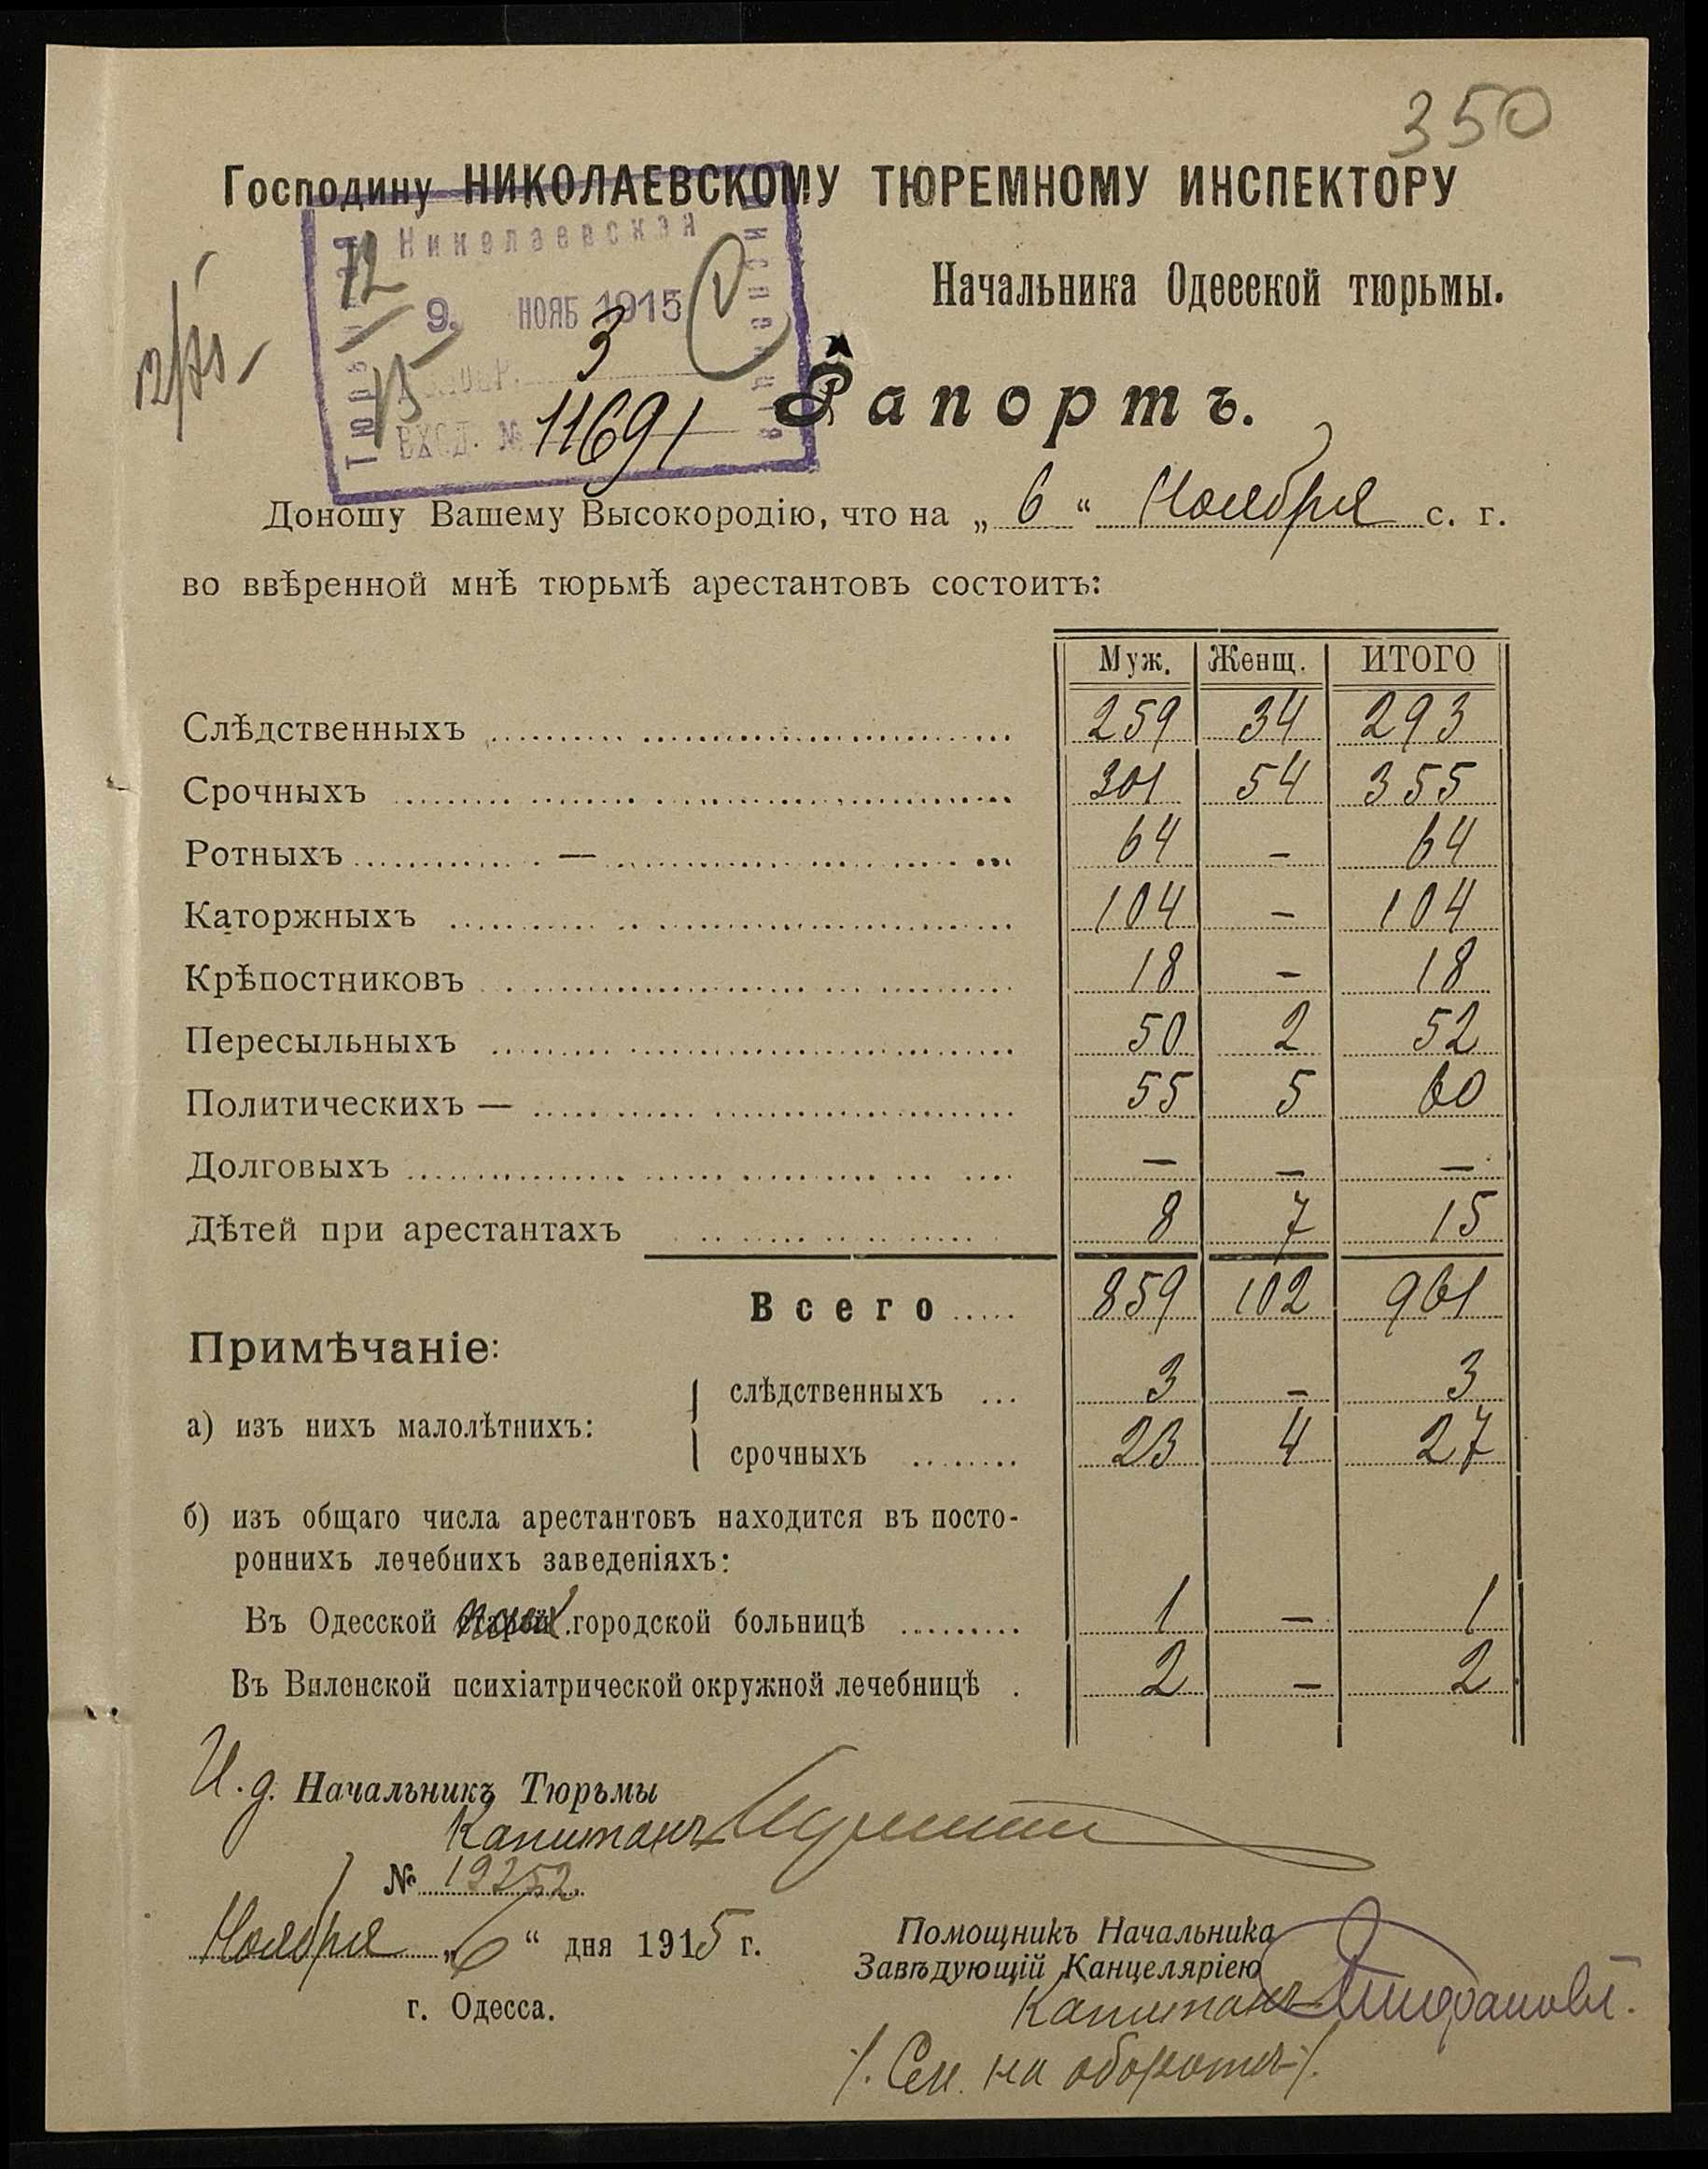 350
Господину НИКОЛАЕВСКОМУ ТЮРЕМНОМУ ИНСПЕКТОРУ
Николаевская
Тюремная
Инспекція
9. НОЯБ 1915
3
ВХОД. № 11691
Начальника Одесской тюрьмы.
Рапортъ.
Доношу Вашему Высокородію, что на „6“ Ноября с. г.
во ввѣренной мнѣ тюрьмѣ арестантовъ состоитъ:
Муж. Женщ. ИТОГО
Слѣдственныхъ 259 34 293
Срочныхъ 301 54 355
Ротныхъ — 64 - 64
Каторжныхъ 104 - 104
Крѣпостниковъ 18 - 18
Пересыльныхъ 50 2 52
Политическихъ — 55 5 60
Долговыхъ — — —
Дѣтей при арестантахъ 8 7 15
Всего 859 102 961
Примѣчаніе:
а) изъ нихъ малолѣтнихъ:
слѣдственныхъ 3 - 3
срочныхъ 23 4 27
б) изъ общаго числа арестантовъ находится въ посто-
роннихъ лечебнихъ заведеніяхъ:
Въ Одесской городской больницѣ 1 — 1
Въ Виленской психіатрической окружной лечебницѣ 2 — 2
И. д. Начальникъ Тюрьмы
Капитанъ
№ 19252
Ноября „6“ дня 1915 г.
г. Одесса.
Помощникъ Начальника
Завѣдующій Канцеляріею
Капитанъ
/. См. на оборотѣ /.